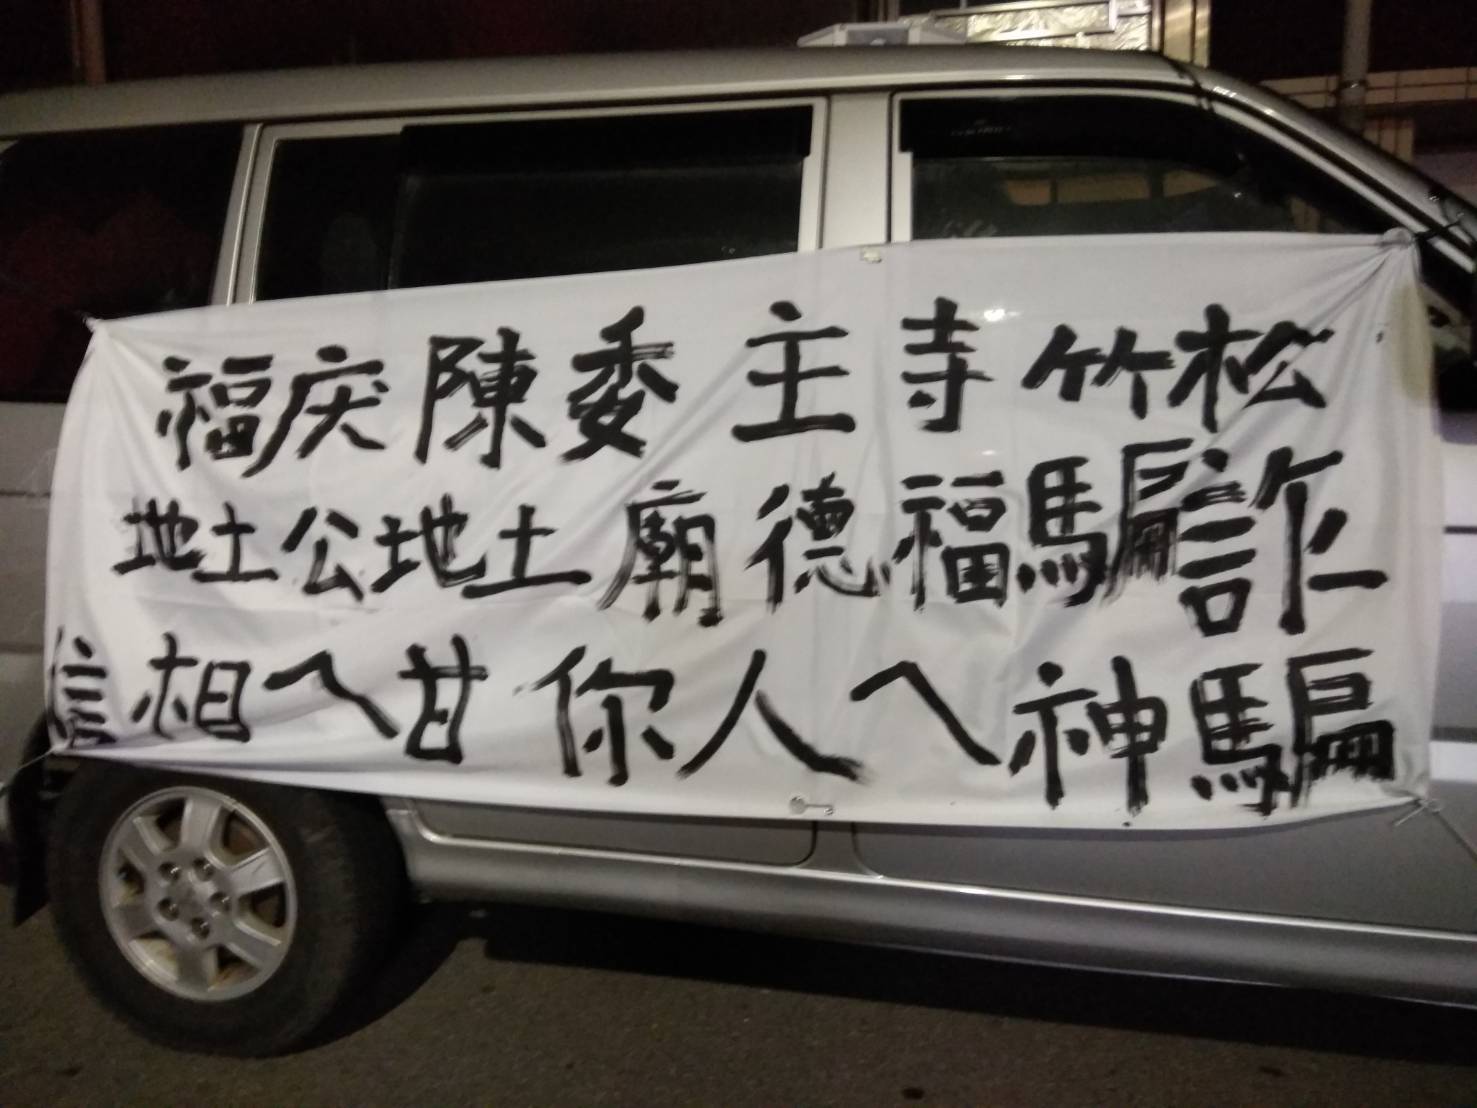 松竹寺主委陳庆福
詐騙福德廟土地公土地
騙神ㄟ人你甘ㄟ相信